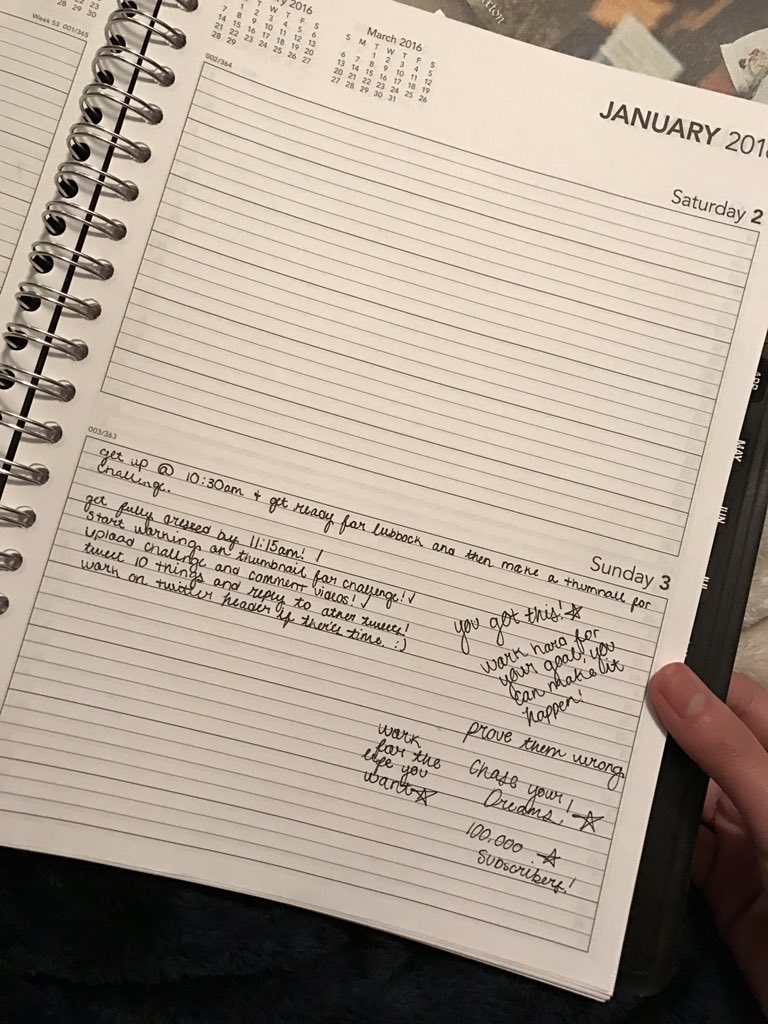 Week 53 001/365
28 29 30
2016
T W T F S
1 2 3 4 5 6
7 8 9 10 11 12 13
14 15 16 17 18 19 20
21 22 23 24 25 26 27
28 29
March 2016
S M T W T F S
1 2 3 4 5
6 7 8 9 10 11 12
13 14 15 16 17 18 19
20 21 22 23 24 25 26
27 28 29 30 31
002/364
JANUARY 2016
Saturday 2
APR
MAY
JUN
JUL
003/363
Sunday 3
get up @ 10:30am + get ready for lubbock and then make a thumnail for
challenge.
get fully dressed by 11:15am! /
start working on thumbnail for challenge! ✓
upload challenge and comment videos! ✓
tweet 10 things and reply to other tweets!
work on twitter header if there's time. :)
you got this! ☆
work hard for
your goal! you
can make it
happen!
prove them wrong.
work
for the
life you
want ☆
Chase your
Dreams! ☆
100,000 ☆
subscribers!